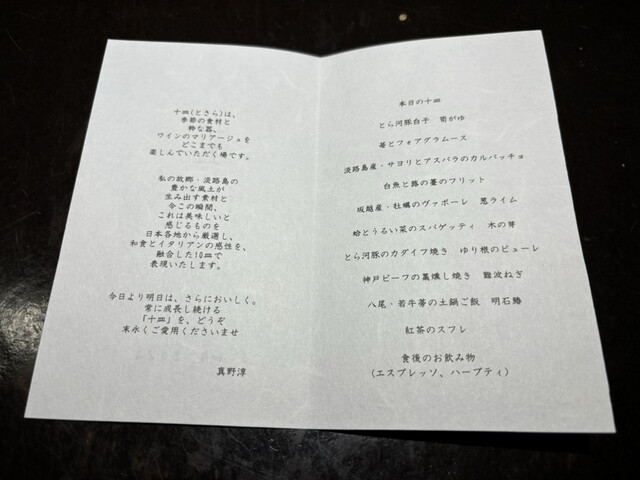 十皿(とさら)は、
季節の食材と
粋な器、
ワインのマリアージュを
どこまでも
楽しんでいただく場です。
私の故郷・淡路島の
豊かな風土が
生み出す素材と
今この瞬間、
これは美味しいと
感じるものを
日本各地から厳選し、
和食とイタリアンの感性を、
融合した10皿で
表現いたします。
今日より明日は、さらにおいしく。
常に成長し続ける
「十皿」を、どうぞ
末永くご愛用くださいませ
真野淳
本日の十皿
とら河豚白子 筍がゆ
苺とフォアグラムース
淡路島産・サヨリとアスパラのカルパッチョ
白魚と蕗の薹のフリット
坂越産・牡蠣のヴァポーレ 葱ライム
蛤とうるい菜のスパゲッティ 木の芽
とら河豚のカダイフ焼き ゆり根のピューレ
神戸ビーフの藁燻し焼き 難波ねぎ
八尾・若牛蒡の土鍋ご飯 明石鯵
紅茶のスフレ
食後のお飲み物
(エスプレッソ、ハーブティ)